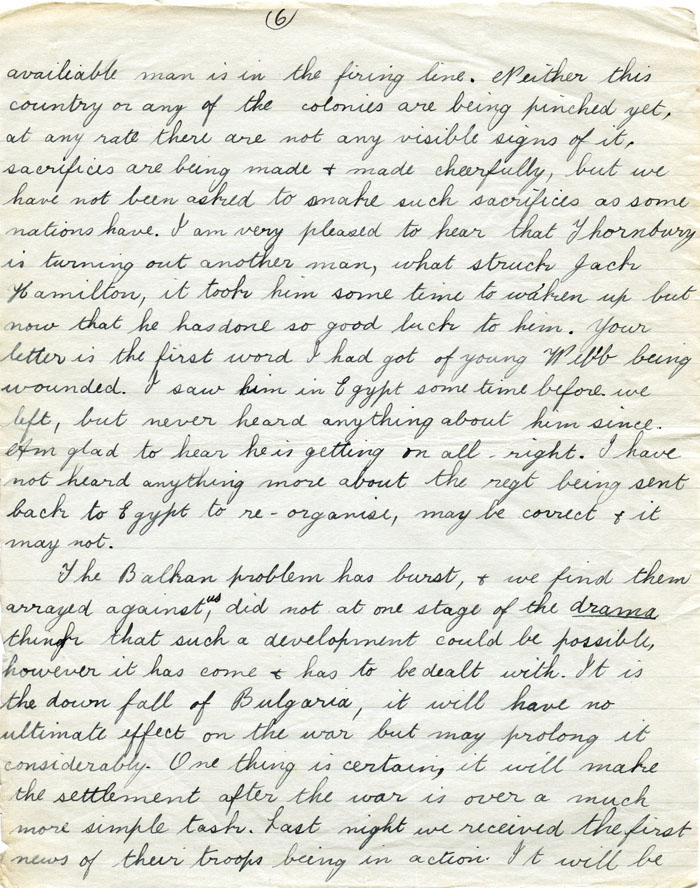 (6)
availiable man is in the firing line. Neither this
country or any of the colonies are being pinched yet,
at any rate there are not any visible signs of it,
sacrifices are being made + made cheerfully, but we
have not been asked to make such sacrifices as some
nations have. I am very pleased to hear that Thornbury
is turning out another man, what struck Jack
Hamilton, it took him some time to waken up but
now that he has done so good luck to him. Your
letter is the first word I had got of young Webb being
wounded. I saw him in Egypt some time before we
left, but never heard anything about him since.
Am glad to hear he is getting on all-right. I have
not heard anything more about the regt being sent
back to Egypt to re-organise, may be correct + it
may not.
The Balkan problem has burst, + we find them
arrayed against us, did not at one stage of the drama
think that such a development could be possible,
however it has come + has to be dealt with. It is
the down fall of Bulgaria, it will have no
ultimate effect on the war but may prolong it
considerably. One thing is certain, it will make
the settlement after the war is over a much
more simple task. Last night we received the first
news of their troops being in action. It will be